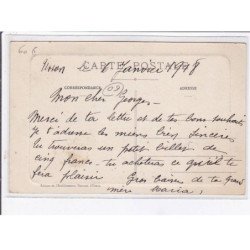 CARTE POSTALE
CORRESPONDANCE
ADRESSE
Janvier 1918
Mon cher Georges
Merci de ta lettre et de tes bons souhaits
je t'adresse les miens bien sincères
tu trouveras un petit billet de
cinq francs tu achèteras ce qui te
fera plaisir Gros baiser de ta grand
mère Maria